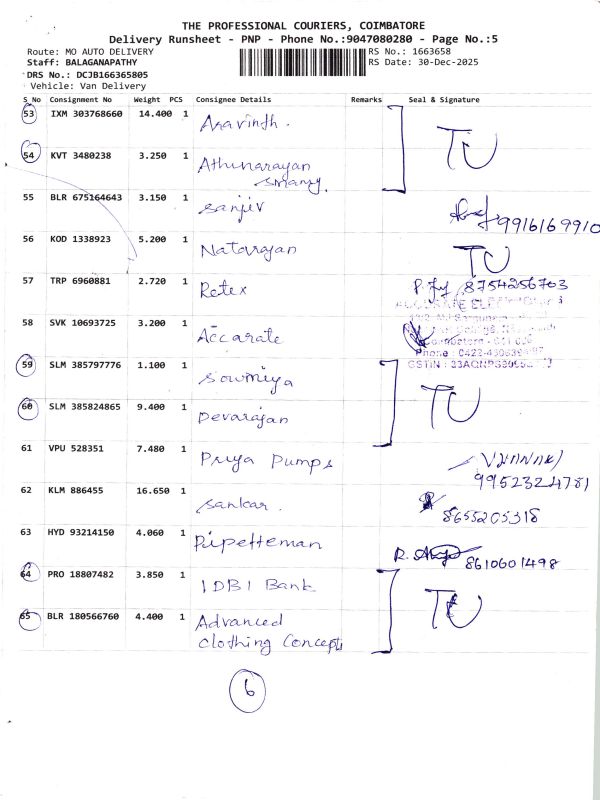 THE PROFESSIONAL COURIERS, COIMBATORE
Delivery Runsheet - PNP - Phone No.:9047080280 - Page No.:5
Route: MO AUTO DELIVERY RS No.: 1663658
Staff: BALAGANAPATHY RS Date: 30-Dec-2025
DRS No.: DCJB166365805
Vehicle: Van Delivery
S_No Consignment No Weight PCS Consignee Details Remarks Seal & Signature
53 IXM 303768660 14.400 1 Aravinth. TU
54 KVT 3480238 3.250 1 Athinarayan
55 BLR 675164643 3.150 1 Sanjiv 9916169910
56 KOD 1338923 5.200 1 Natarajan TU
57 TRP 6960881 2.720 1 Retex 8754256703
58 SVK 10693725 3.200 1 Accarate
Coimbatore
Phone : 0422
59 SLM 385797776 1.100 1 Sowmiya TU
60 SLM 385824865 9.400 1 Devarajan
61 VPU 528351 7.480 1 Priya Pumps
9952324781
62 KLM 886455 16.650 1 Sankar. 8655205318
63 HYD 93214150 4.060 1 Pipetteman 8610601498
64 PRO 18807482 3.850 1 IDBI Bank TU
65 BLR 180566760 4.400 1 Advanced
Clothing Concepts
6